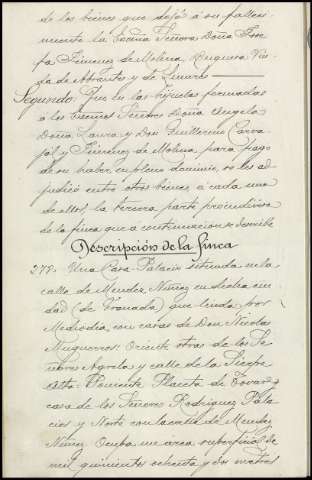 de los bienes que dejó a su falleci-
miento la Excma Señora Doña Jose-
fa Jimenez de Molina, Duquesa Viu-
da de Abrantes y de Linares
Segundo. Que en las hijuelas formadas
a los Excmos Señores Doña Angela
Doña Laura y Don Guillermo Carva-
jal y Jimenez de Molina, para pago
de su haber en pleno dominio, se les ad-
judicó entre otros bienes, a cada uno
de ellos, la tercera parte proindivisa
de la finca que a continuacion se describe
Descripción de la finca
278. Una Casa-Palacio situada en la
calle de Mendez Nuñez en dicha ciu-
dad (de Granada) que linda por
Mediodia, con casas de Don Nicolas
Oriente otras de los Se-
ñores Agrela y calle de la
Poniente Placeta de Tovar y
casa de los Señores Rodriguez Pala-
cios y Norte con la calle de Mendez
Nuñez Ocupa un area superficial de
mil quinientos ochenta y dos metros